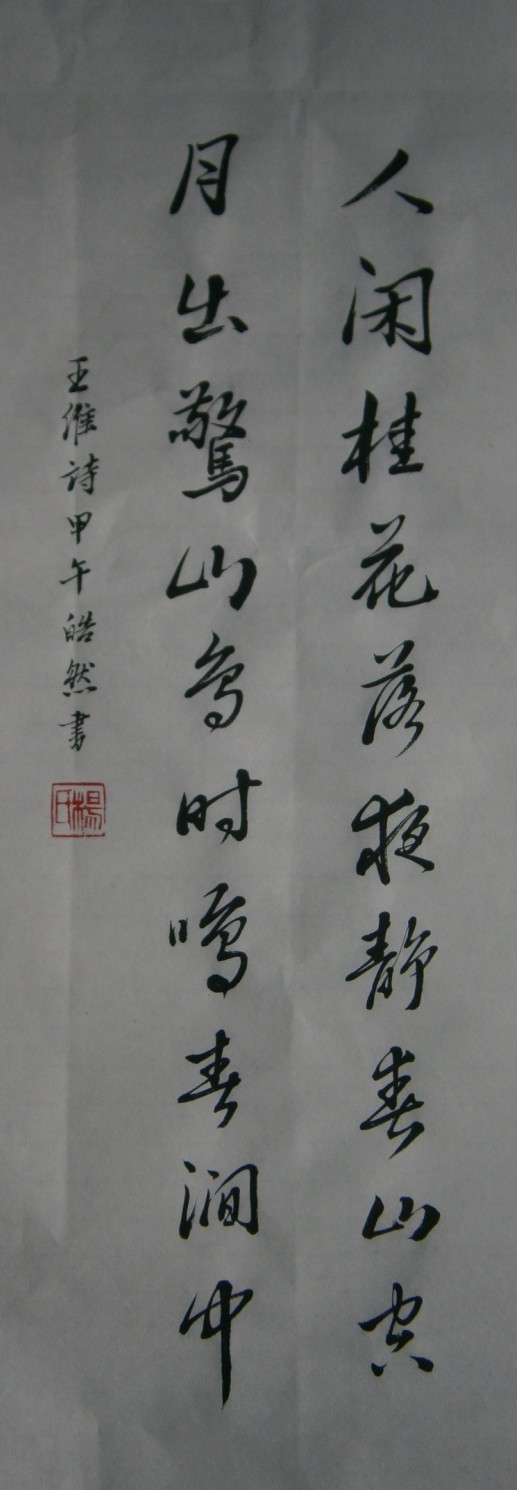 人闲桂花落夜静春山空
月出驚山鸟时鳴春澗中
王維詩甲午皓然書
楊氏